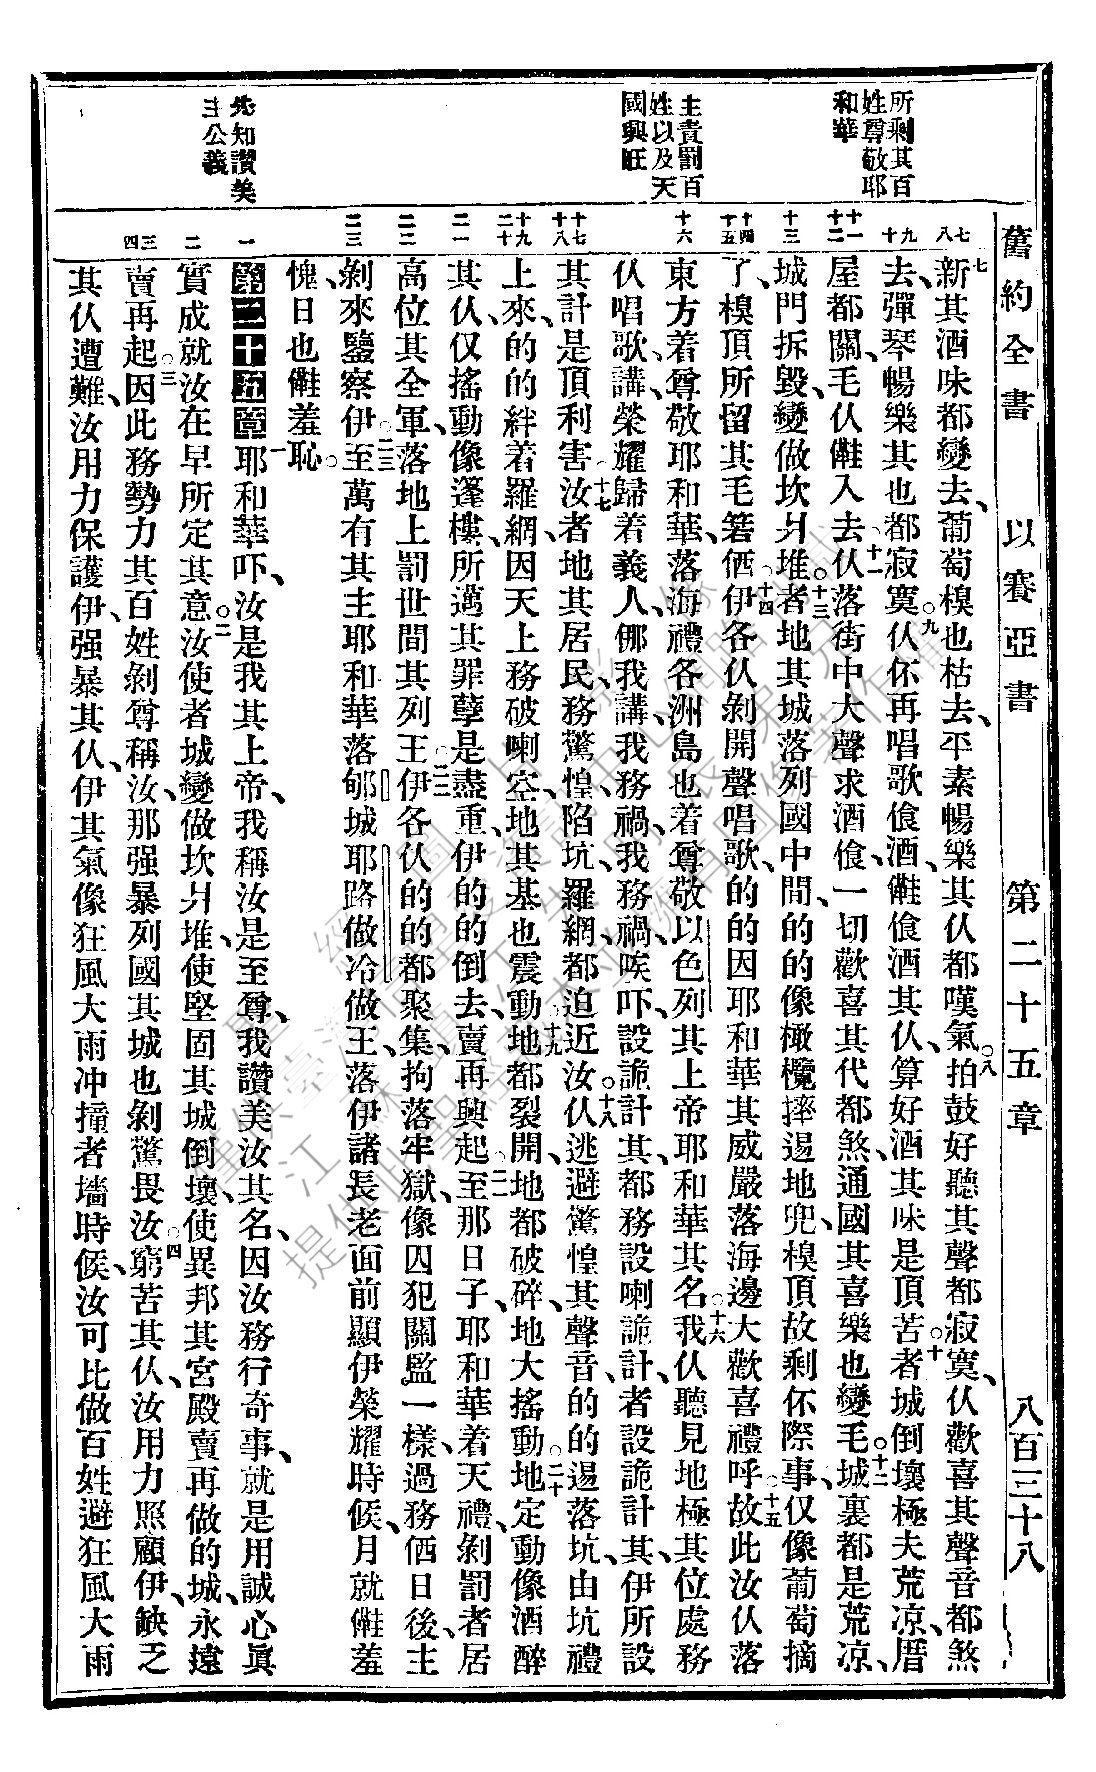 舊約全書 以賽亞書 第二十五章 八百三十八
所剩其百
姓尊敬耶
和華
主責罰百
姓以及天
國興旺
先知讚美
主公義
七 八
九 十
十一 十二
十三
十四 十五
十六
十七 十八
十九 二十
二一
二二
二三
一
二
三 四
七新其酒味都變去、葡萄模也枯去、平素暢樂其仈都嘆氣○八拍鼓好聽其聲都寂寞、仈歡喜其聲音都煞
去、彈琴暢樂其也都寂寞○九仈伓再唱歌食酒、𣍐食酒其仈、算好酒其味是頂苦○十者城倒壞極夫荒凉、厝
屋都關、毛仈𣍐入去○十一仈落街中大聲求酒食、一切歡喜其代都煞、通國其喜樂也變毛○十二城裏都是荒凉、
城門拆毀、變做坎爿堆○十三者地其城落列國中間的的像橄欖摔逿地兜、模頂故剩伓際事、仅像葡萄摘
了、模頂所留其毛箬俩○十四伊各仈剝開聲唱歌、的的因耶和華其威嚴落海邊大歡喜禮呼○十五故此汝仈落
東方着尊敬耶和華、落海禮各洲島也着尊敬以色列其上帝耶和華其名○十六我仈聽見地極、其位處務
仈唱歌、講、榮耀歸着義人、㑚我講、我務禍、我務禍、唉吓、設詭計其、都務設喇詭計、者設詭計其、伊所設
其計是頂利害○十七汝者地其居民、務驚惶、陷坑、羅網、都迫近汝○十八仈逃避驚惶其聲音、的的逿落坑、由坑禮
上來、的的絆着羅網、因天上務破喇空、地其基也震動○十九地都裂開、地都破碎、地大搖動○二十地定動像酒醉
其仈、仅搖動像篷樓、所邁其罪孽是盡重、伊的的倒去、賣再興起○二一至那日子、耶和華着天禮、剝罰者居
高位其全軍、落地上罰世間其列王○二二伊各仈的的都聚集、拘落牢獄、像囚犯關監一樣、過務俩日後、主
剝來鑒察伊○二三至萬有其主耶和華落郇城耶路做冷做王、落伊諸長老面前顯伊榮耀時候、月就𣍐羞
愧、日也𣍐羞恥○
第二十五章 一耶和華吓、汝是我其上帝、我稱汝是至尊、我讚美汝其名、因汝務行奇事、就是用誠心眞
實成就汝在早所定其意○二汝使者城變做坎爿堆、使堅固其城倒壞、使異邦其宮殿賣再做的城、永遠
賣再起○三因此務勢力其百姓剝尊稱汝、那强暴列國其城也剝驚畏汝○四窮苦其仈、汝用力照顧伊、缺乏
其仈遭難、汝用力保護伊、强暴其仈、伊其氣像狂風大雨冲撞者墻時候、汝可比做百姓避狂風大雨